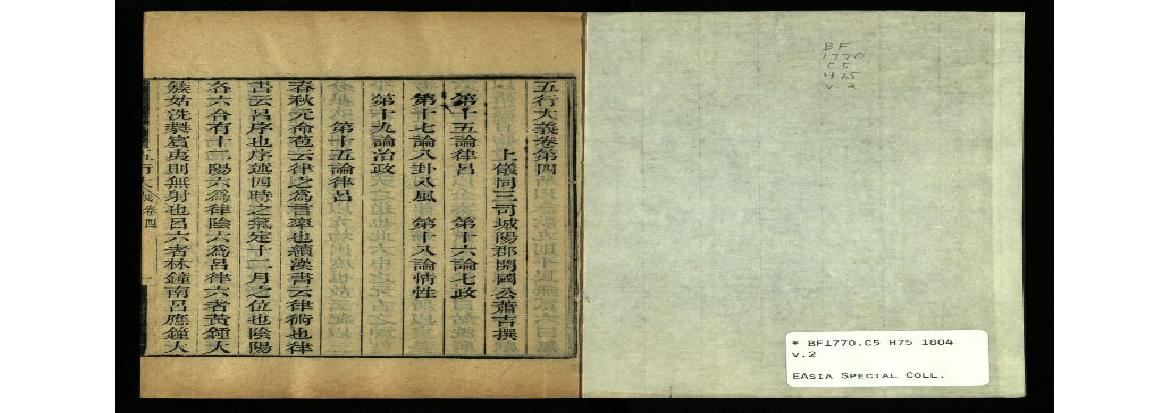 五行大義卷第四
上儀同三司城陽郡開國公蕭吉撰
第十五論律呂 第十六論七政
第十七論八卦八風 第十八論情性
第十九論治政
第十五論律呂
春秋元命苞云律之爲言率也續漢書云律術也律
書云呂序也序述四時之氣定十二月之位也陰陽
各六合有十二陽六爲律陰六爲呂律六者黃鍾大
蔟姑洗蕤賓夷則無射也呂六者林鐘南呂應鐘大
五行大義卷四
一
BF
1770
C5
H75
v.2
* BF1770.C5 H75 1804
v.2
EAsia Special Coll.